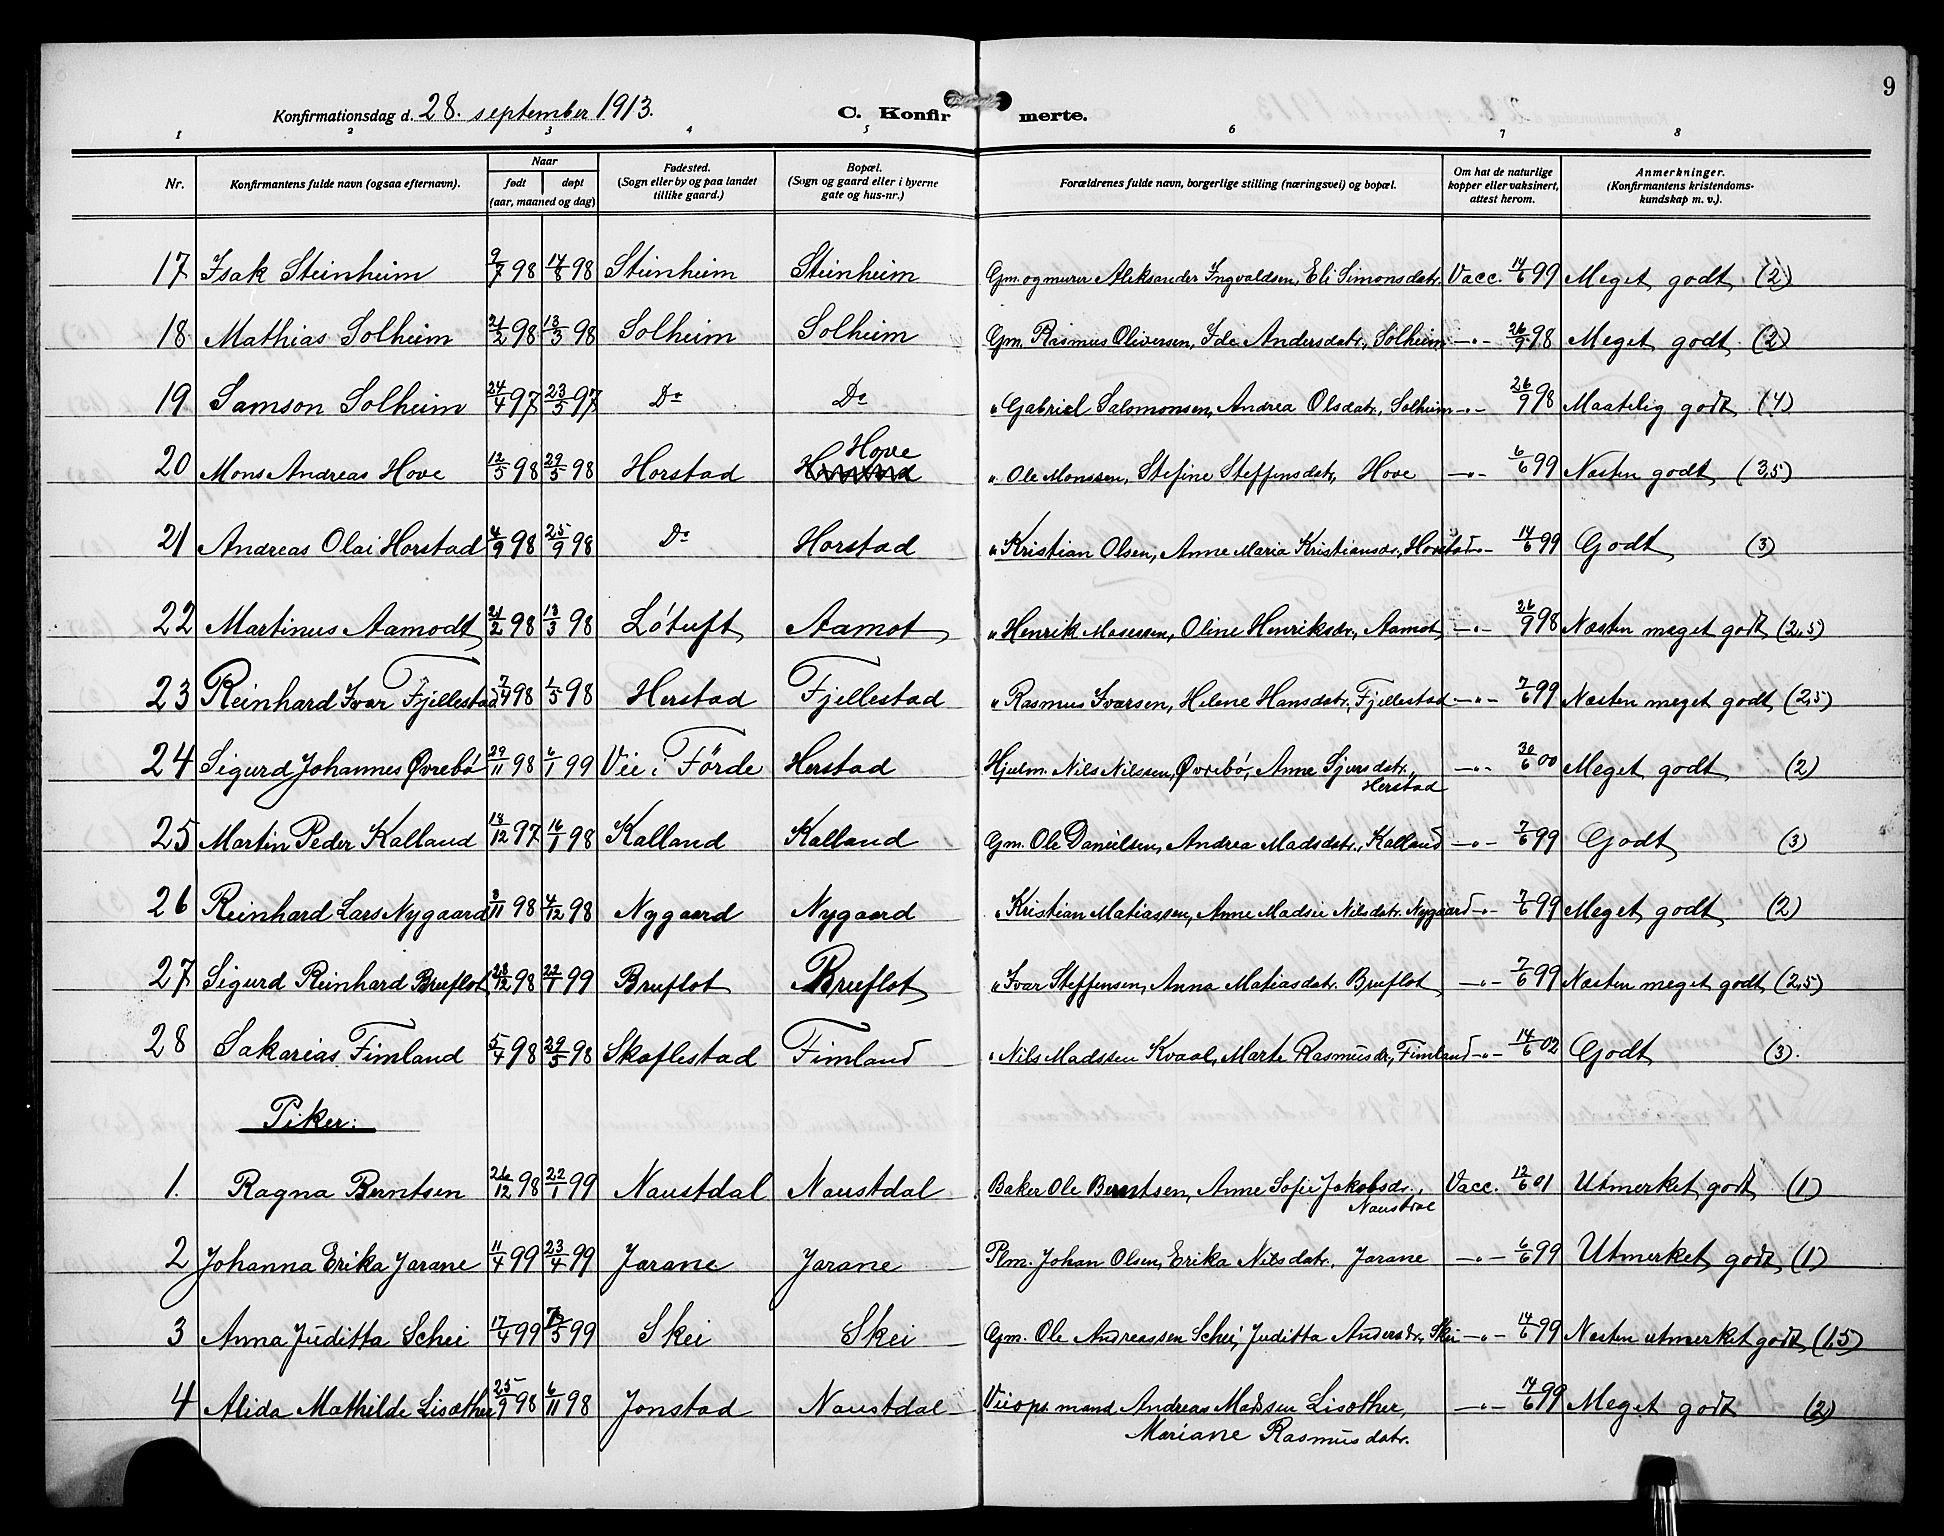 9
Konfirmationsdag d. 28. september 1913. C. Konfirmerte.
1 2 3 4 5 6 7 8
Nr. Konfirmantens fulde navn (ogsaa efternavn). Naar født døpt (aar, maaned og dag) Fødested. (Sogn eller by og paa landet tillike gaard.) Bopæl. (Sogn og gaard eller i byerne gate og hus-nr.) Forældrenes fulde navn, borgerlige stilling (næringsvei) og bopæl. Om hat de naturlige kopper eller vaksinert, attest herom. Anmerkninger. (Konfirmantens kristendomskundskap m. v.).
17 Isak Steinheim 9/7 98 14/8 98 Steinheim Steinheim Gm. og murer Aleksander Ingvaldsen, Eli Simonsdatr. Vacc. 14/6 99 Meget godt (2)
18 Mathias Solheim 21/2 98 13/3 98 Solheim Solheim Gm. Rasmus Oliversen, Ida Andersdatr., Solheim –"– 26/9 98 Meget godt (2)
19 Samson Solheim 24/4 97 23/5 97 Do Do " Gabriel Salomonsen, Andrea Olsdatr., Solheim –"– 26/9 98 Maatelig godt (4)
20 Mons Andreas Hove 12/5 98 29/5 98 Horstad Hove " Ole Monssen, Stefine Steffensdatr., Hove –"– 6/6 99 Næsten godt (3,5)
21 Andreas Olai Horstad 4/9 98 25/9 98 Do Horstad " Kristian Olsen, Anne Maria Kristiansdr., Horstad –"– 14/6 99 Godt (3)
22 Martinus Aamodt 21/2 98 13/3 98 Løtuft Aamot " Henrik Mosessen, Oline Henriksdr., Aamot –"– 26/9 98 Næsten meget godt (2,5)
23 Reinhard Ivar Fjellestad 7/4 98 1/5 98 Herstad Fjellestad " Rasmus Ivarsen, Helene Hansdatr., Fjellestad –"– 7/6 99 Næsten meget godt (2,5)
24 Sigurd Johannes Øvrebø 29/11 98 6/1 99 Vie i Förde Herstad Hjulm. Nils Nilssen, Øvrebø, Anne Sjursdatr., Herstad –"– 30/6 00 Meget godt (2)
25 Martin Peder Kalland 18/12 97 16/1 98 Kalland Kalland Gm. Ole Danielsen, Andrea Madsdatr., Kalland –"– 7/6 99 Godt (3)
26 Reinhard Lars Nygaard 8/11 98 4/12 98 Nygaard Nygaard " Kristian Matiassen, Anne Madsie Nilsdatr. Nygaard –"– 7/6 99 Meget godt (2)
27 Sigurd Reinhard Bruflot 28/12 98 22/1 99 Bruflot Bruflot " Ivar Steffensen, Anna Matiasdatr. Bruflot –"– 7/6 99 Næsten meget godt (2,5)
28 Sakarias Fimland 5/4 98 29/5 98 Skaflestad Fimland " Nils Madssen Kvaal, Marte Rasmusdr., Fimland –"– 14/6 02 Godt (3).
Piker:
1. Ragna Berntsen 26/12 98 22/1 99 Naustdal Naustdal Baker Ole Berntsen, Anne Sofie Jakobsdr., Naustdal Vacc. 12/6 01 Utmerket godt (1)
2 Johanna Erika Jarane 11/4 99 23/4 99 Jarane Jarane Plm. Johan Olsen, Erika Nilsdatr., Jarane –"– 6/6 99 Utmerket godt (1)
3 Anna Juditta Schei 17/4 99 5 99 Skei Skei Gm. Ole Andreassen Schei, Juditta Andersdr., Skei –"– 14/6 99 Næsten utmerket godt (1,5)
4 Alida Mathilde Lisæther 25/9 98 6/11 98 Jonstad Naustdal Veiops.mand Andreas Madssen Lisæther, –"– 14/6 99 Meget godt (2)
Mariane Rasmusdatr.